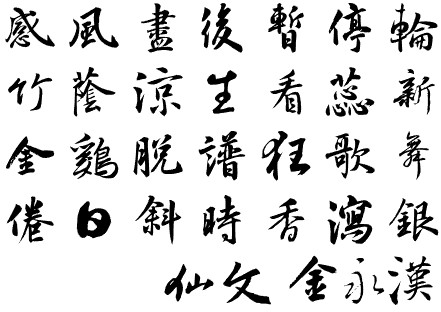 感風盡後暫停輪
竹蔭涼生看蕊新
金鷄脫譜狂歌舞
倦日斜時香瀉銀
仙文 金永漢